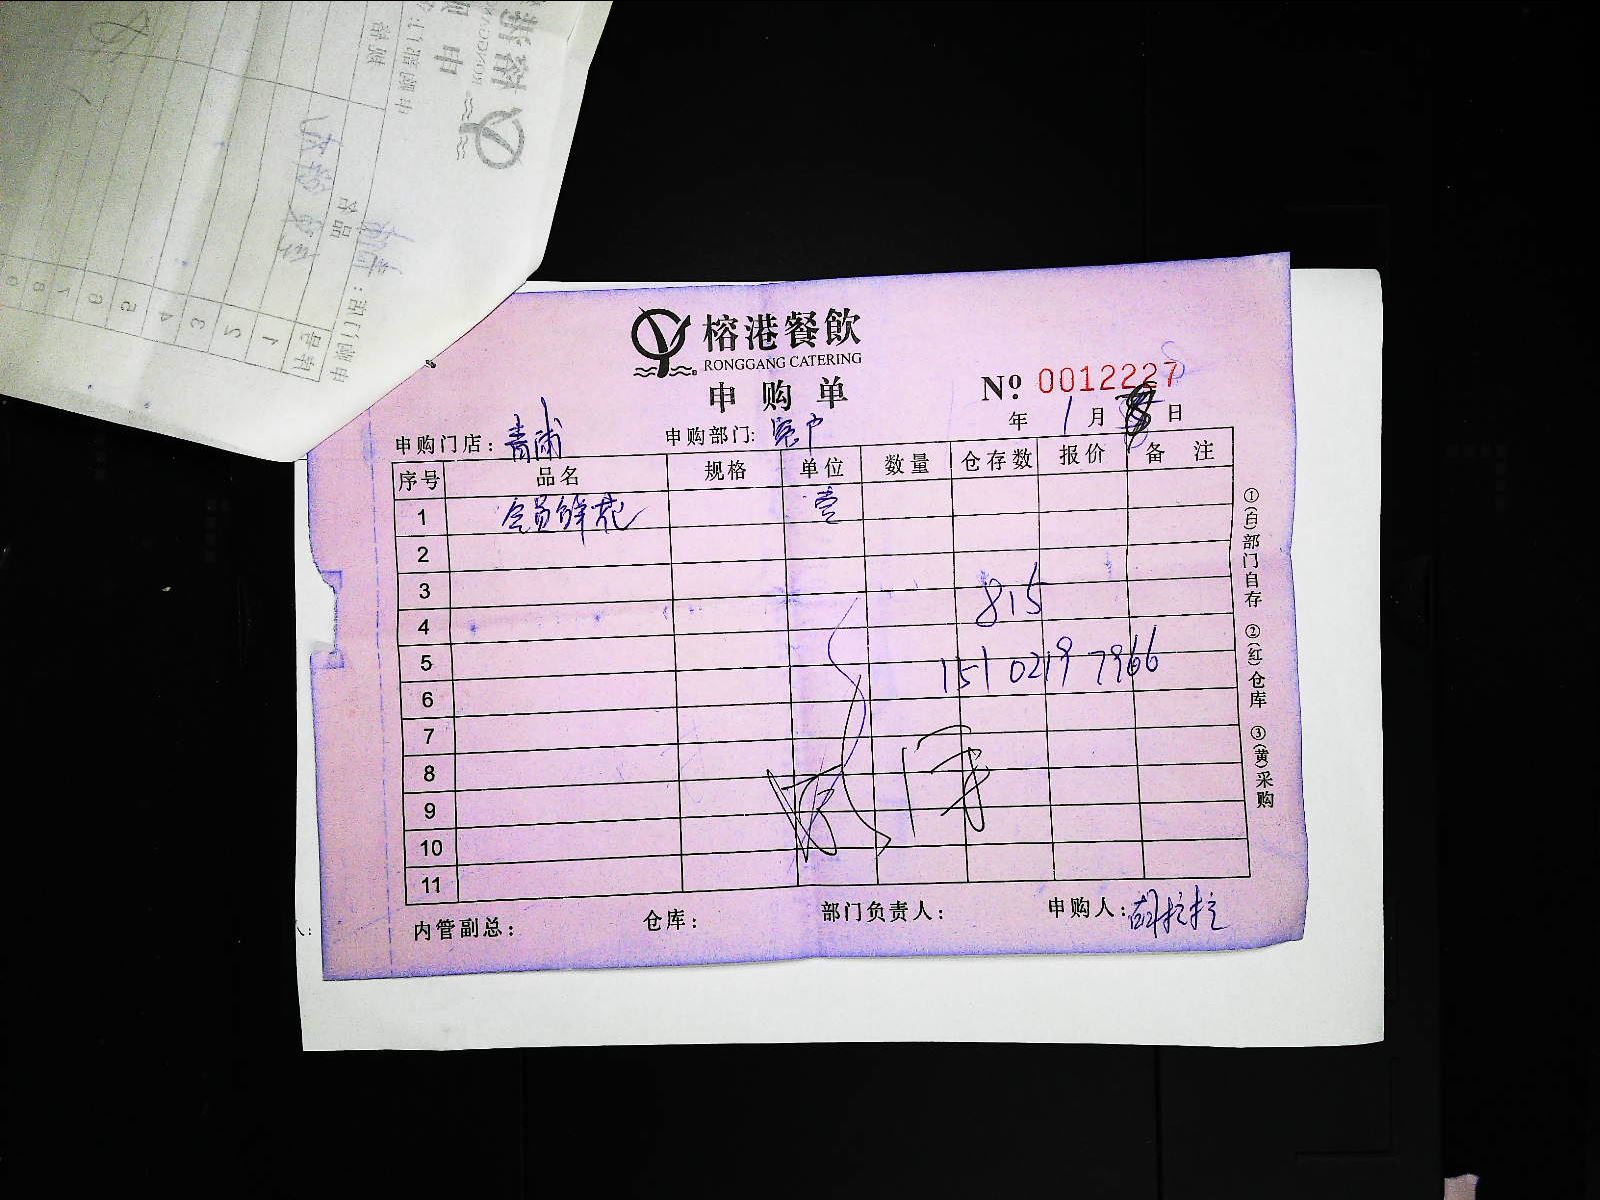 榕港餐飲
RONGGANG CATERING
申购单
№ 0012227
年 1 月 8 日
申购门店：青浦 申购部门：客户
序号 品名 规格 单位 数量 仓存数 报价 备注
1 会员鲜花 壹
2
3
815
4
5
151 0219 7966
6
7
8
9
10
11
内管副总： 仓库： 部门负责人： 申购人：胡拉拉
①(白)部门自存 ②(红)仓库 ③(黄)采购